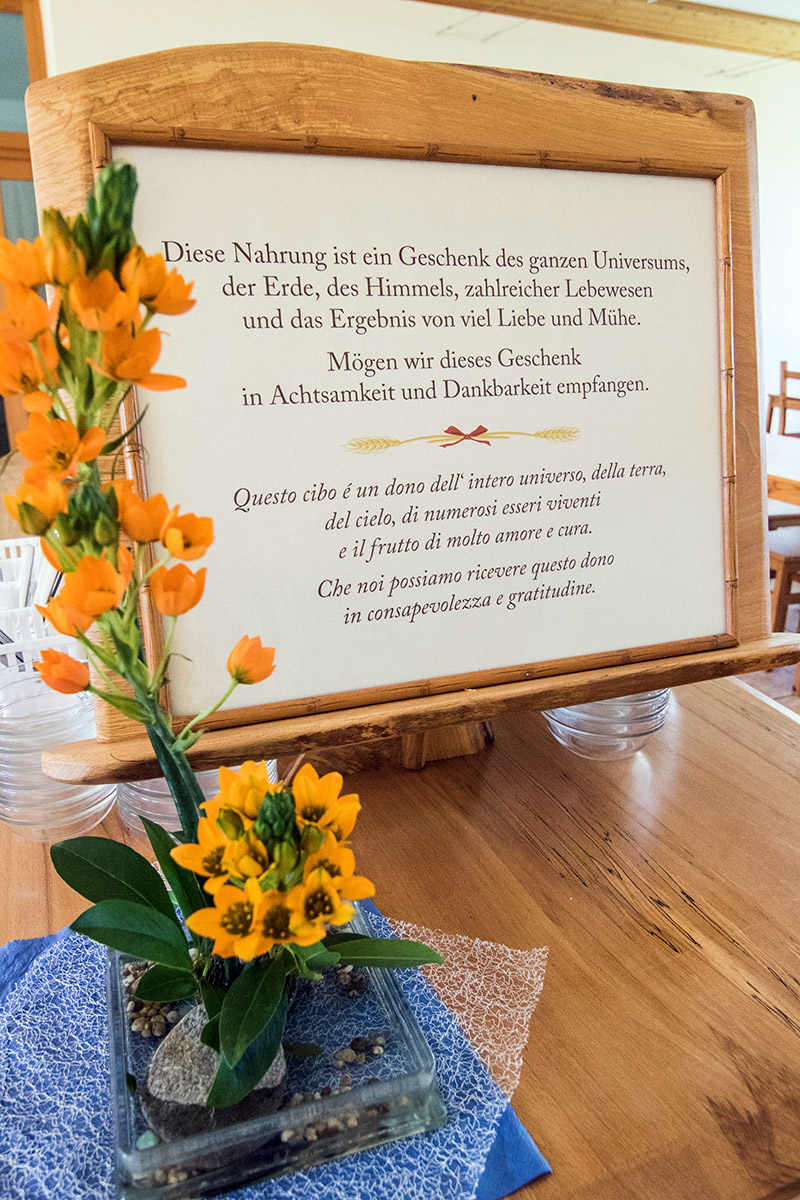 Diese Nahrung ist ein Geschenk des ganzen Universums,
der Erde, des Himmels, zahlreicher Lebewesen
und das Ergebnis von viel Liebe und Mühe.
Mögen wir dieses Geschenk
in Achtsamkeit und Dankbarkeit empfangen.
Questo cibo é un dono dell‘ intero universo, della terra,
del cielo, di numerosi esseri viventi
e il frutto di molto amore e cura.
Che noi possiamo ricevere questo dono
in consapevolezza e gratitudine.